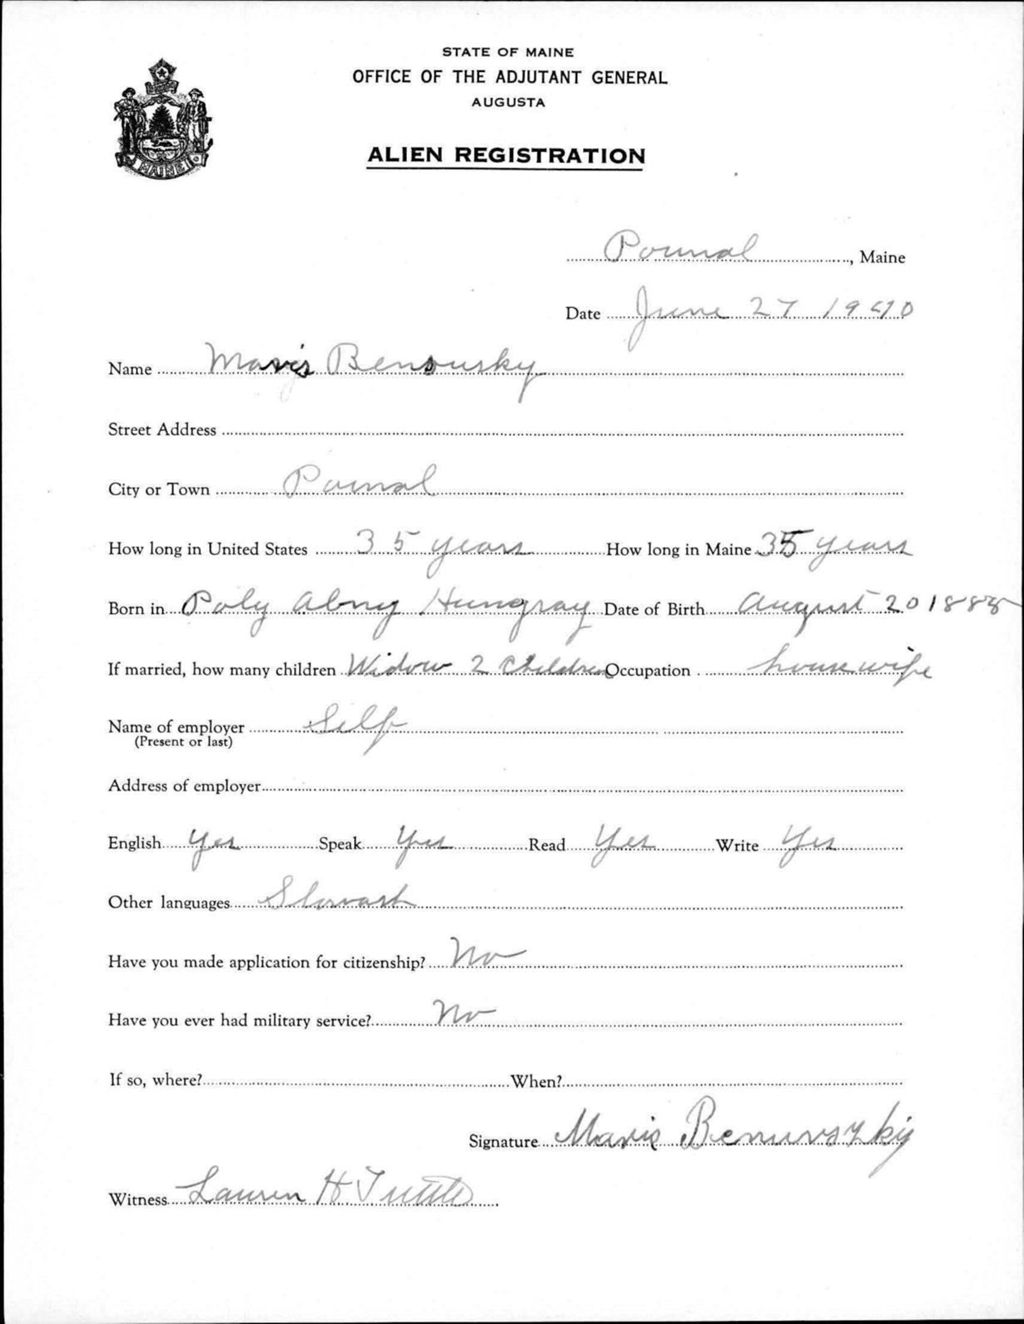 STATE OF MAINE
OFFICE OF THE ADJUTANT GENERAL
AUGUSTA
ALIEN REGISTRATION
MAINE
Pownal, Maine
Date June 27 1940
Name Maris Benousky
Street Address
City or Town Pownal
How long in United States 35 years How long in Maine 35 years
Born in Poly Abny Hungray Date of Birth August 20 1888
If married, how many children Widow 2 Children Occupation housewife
Name of employer Self
(Present or last)
Address of employer
English Yes Speak Yes Read Yes Write Yes
Other languages Slowash
Have you made application for citizenship? No
Have you ever had military service? No
If so, where? When?
Signature Maris
Witness Lauren H Tuttle